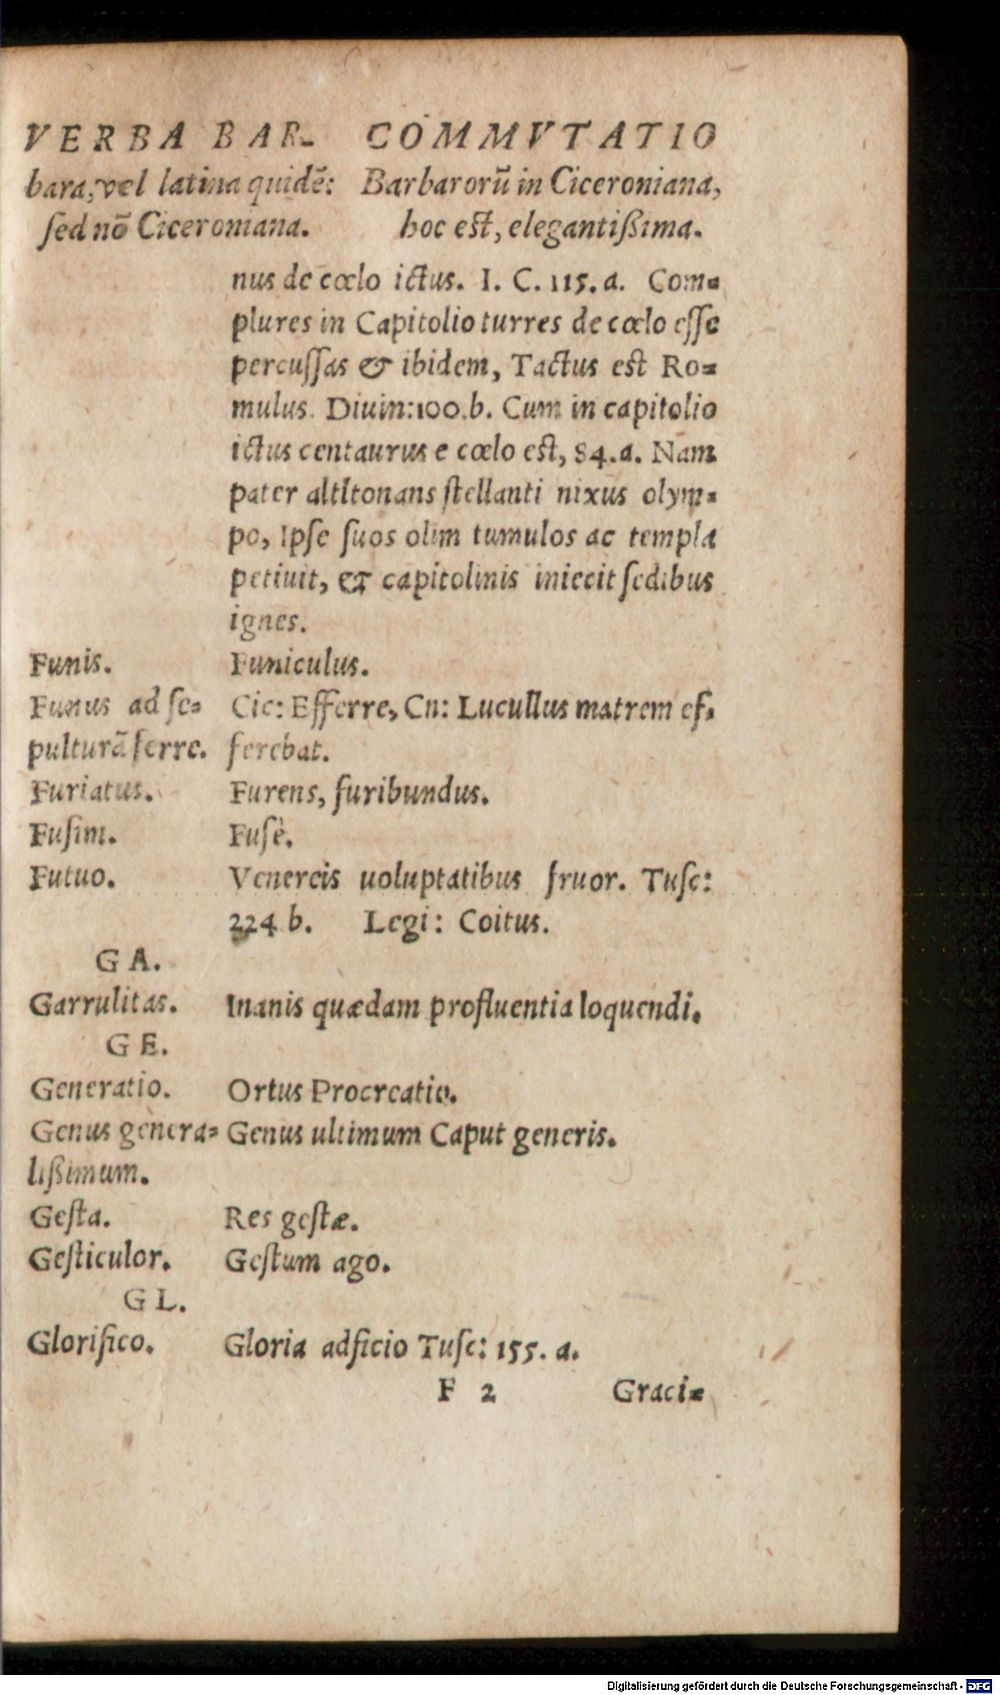 VERBA BAR- COMMVTATIO
bara, vel latina quidē: Barbarorū in Ciceroniana,
sed nō Ciceroniana. hoc est, elegantißima.
nus de cœlo ictus. I. C. 115. a. Com-
plures in Capitolio turres de cœlo eſſe
percuſſas & ibidem, Tactus est Ro-
mulus. Diuin: 100. b. Cum in capitolio
ictus centaurus e cœlo est, 84. a. Nam
pater altitonans ſtellanti nixus olym-
po, Ipſe ſuos olim tumulos ac templa
petiuit, & capitolinis iniecit ſedibus
ignes.
Funis. Funiculus.
Funus ad ſe- Cic: Efferre, Cn: Lucullus matrem ef-
pulturā ferre. ferebat.
Furiatus. Furens, furibundus.
Fuſim. Fuſè.
Futuo. Venereis uoluptatibus fruor. Tuſc:
224 b. Legi: Coitus.
GA.
Garrulitas. Inanis quædam profluentia loquendi.
GE.
Generatio. Ortus Procreatio.
Genus genera- Genus ultimum Caput generis.
lißimum.
Geſta. Res geſtæ.
Geſticulor. Geſtum ago.
GL.
Glorifico. Gloria adficio Tuſc: 155. a.
F 2 Graci-
Digitalisierung gefördert durch die Deutsche Forschungsgemeinschaft - DFG